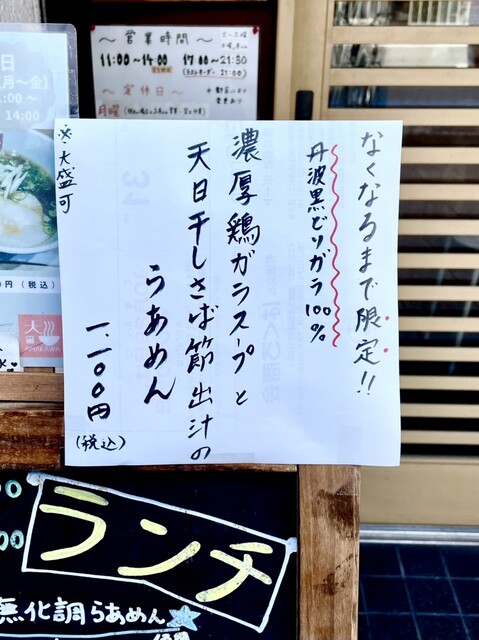 〜営業時間〜
11:00〜14:00 17:00〜21:30
(ラストオーダー 21:00)
〜定休日〜
月曜
日
(月〜金)
14:00
円(税込)
なくなるまで限定!!
丹波黒どりガラ100%
濃厚鶏ガラスープと
天日干しさば節出汁の
らあめん
一、一〇〇円
(税込)
※大盛可
ランチ
無化調らあめん